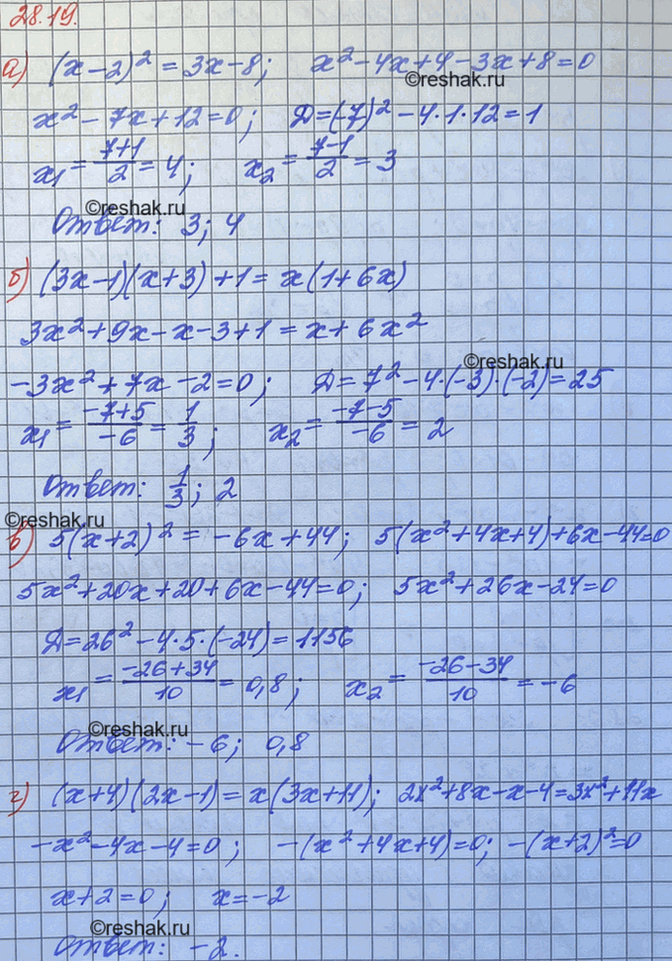 28.19.
а) (x-2)² = 3x-8; x²-4x+4-3x+8=0
©reshak.ru
x²-7x+12=0; Д=(-7)²-4·1·12=1
x₁ = (7+1)/2 = 4; x₂ = (7-1)/2 = 3
©reshak.ru
Ответ: 3; 4
б) (3x-1)(x+3)+1 = x(1+6x)
3x²+9x-x-3+1 = x+6x²
©reshak.ru
-3x²+7x-2=0; Д=7²-4·(-3)·(-2)=25
x₁ = (-7+5)/-6 = 1/3; x₂ = (-7-5)/-6 = 2
Ответ: 1/3; 2
©reshak.ru
в) 5(x+2)² = -6x+44; 5(x²+4x+4)+6x-44=0
5x²+20x+20+6x-44=0; 5x²+26x-24=0
Д=26²-4·5·(-24)=1156
x₁ = (-26+34)/10 = 0,8; x₂ = (-26-34)/10 = -6
©reshak.ru
Ответ: -6; 0,8
г) (x+4)(2x-1)=x(3x+11); 2x²+8x-x-4=3x²+11x
-x²-4x-4=0; -(x²+4x+4)=0; -(x+2)²=0
x+2=0; x=-2
©reshak.ru
Ответ: -2.